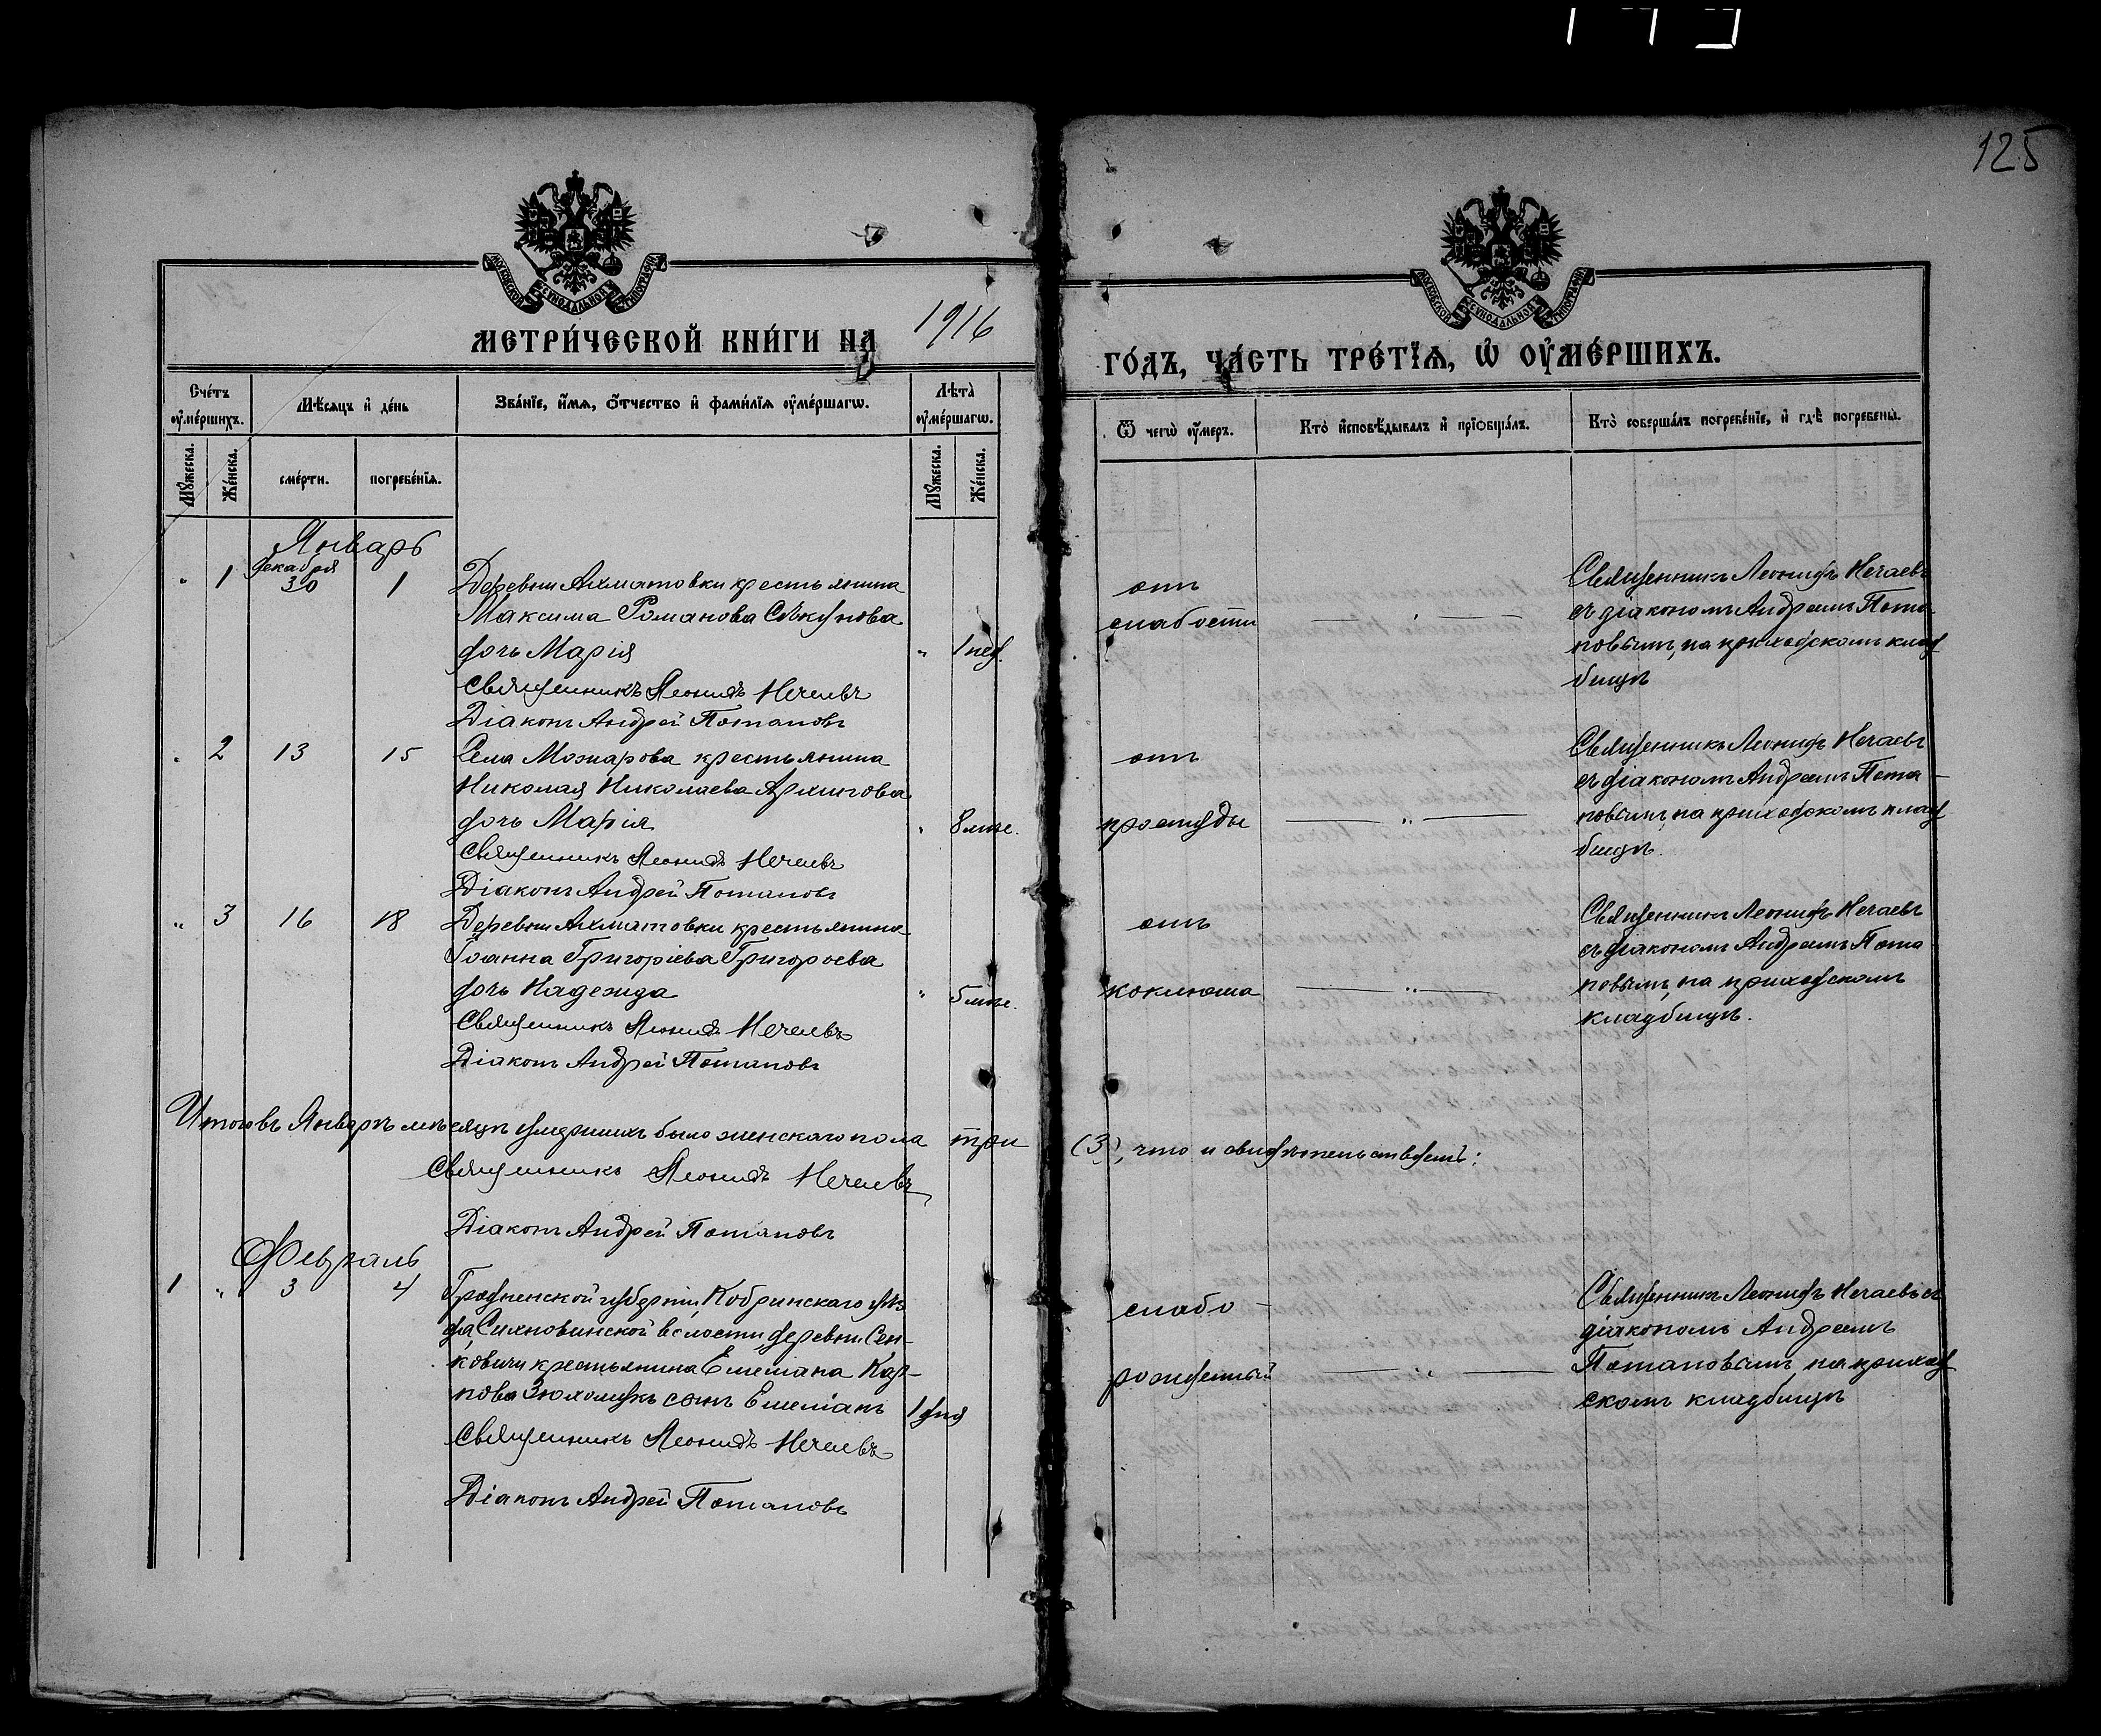 125
МОСКОВСКОЙ СѴНОДАЛЬНОЙ ТИПОГРАФІИ
МОСКОВСКОЙ СѴНОДАЛЬНОЙ ТИПОГРАФІИ
МЕТРИ́ЧЕСКОЙ КНИ́ГИ НА 1916
ГО́ДЪ, ЧА́СТЬ ТРЕ́ТЇѦ, Ѡ҆ ОУ҆МЕ́РШИХЪ.
Сче́тъ оу҆ме́ршихъ.
Мѣ́сяцъ и҆ де́нь
Зва́нїе, и҆́мѧ, ѻ҆́тчество и҆ фами́лїѧ оу҆ме́ршагѡ.
Лѣ́та оу҆ме́ршагѡ.
Ѿ чегѡ̀ оу҆́меръ.
Кто̀ и҆сповѣ́дывалъ и҆ прїѡбща́лъ.
Кто̀ соверша́лъ погребе́нїе, и҆ гдѣ̀ погребены̀.
Мꙋ́жеска.
Же́нска.
сме́рти.
погребе́нїѧ.
Мꙋ́жеска.
Же́нска.
Январь
" 1 декабря 30 1 Деревни Ахматовки крестьянина
Максима Романова Сѣкунова
дочь Марія " 1 нед.
Священникъ Леонидъ Нечаевъ
Діаконъ Андрей Потаповъ
отъ
слабости
Священникъ Леонидъ Нечаевъ
съ діакономъ Андреемъ Пота-
повымъ, на приходскомъ клад
бищѣ
" 2 13 15 Села Можарова крестьянина
Николая Николаева Архипова
дочь Марія " 8 мѣс.
Священникъ Леонидъ Нечаевъ
Діаконъ Андрей Потаповъ
отъ
простуды
Священникъ Леонидъ Нечаевъ
съ діакономъ Андреемъ Пота-
повымъ, на приходскомъ клад
бищѣ.
" 3 16 18 Деревни Ахматовки крестьянина
Іоанна Григоріева Григорьева
дочь Надежда " 5 мѣс.
Священникъ Леонидъ Нечаевъ
Діаконъ Андрей Потаповъ
отъ
коклюша
Священникъ Леонидъ Нечаевъ
съ діакономъ Андреемъ Пота
повымъ, на приходскомъ
кладбищѣ.
Итого въ Январѣ мѣсяцѣ умершихъ было женскаго пола три (3), что и свидѣтельствуемъ:
Священникъ Леонидъ Нечаевъ
Діаконъ Андрей Потаповъ
Февраль
1 " 3 4 Гродненской губерніи, Кобринскаго уѣз
да, волости деревни Сен-
ковичи крестьянина Емеліана Кар-
пова сынъ Емеліанъ 1 дня
Священникъ Леонидъ Нечаевъ
Діаконъ Андрей Потаповъ
слабо-
рожденный
Священникъ Леонидъ Нечаевъ съ
діакономъ Андреемъ
Потаповымъ, на приход
скомъ кладбищѣ